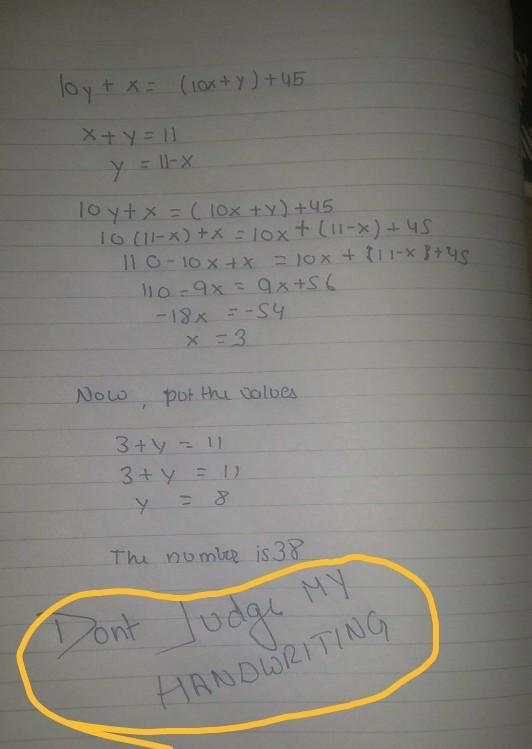 10y + x = (10x+y)+45
x + y = 11
y = 11-x
10y+x = (10x +y)+45
10 (11-x)+x = 10x + (11-x) + 45
110-10x+x = 10x + {11-x}+45
110-9x = 9x+56
-18x = -54
x = 3
Now, put the values
3+y = 11
3+y = 11
y = 8
The number is 38
Dont Judge MY
HANDWRITING